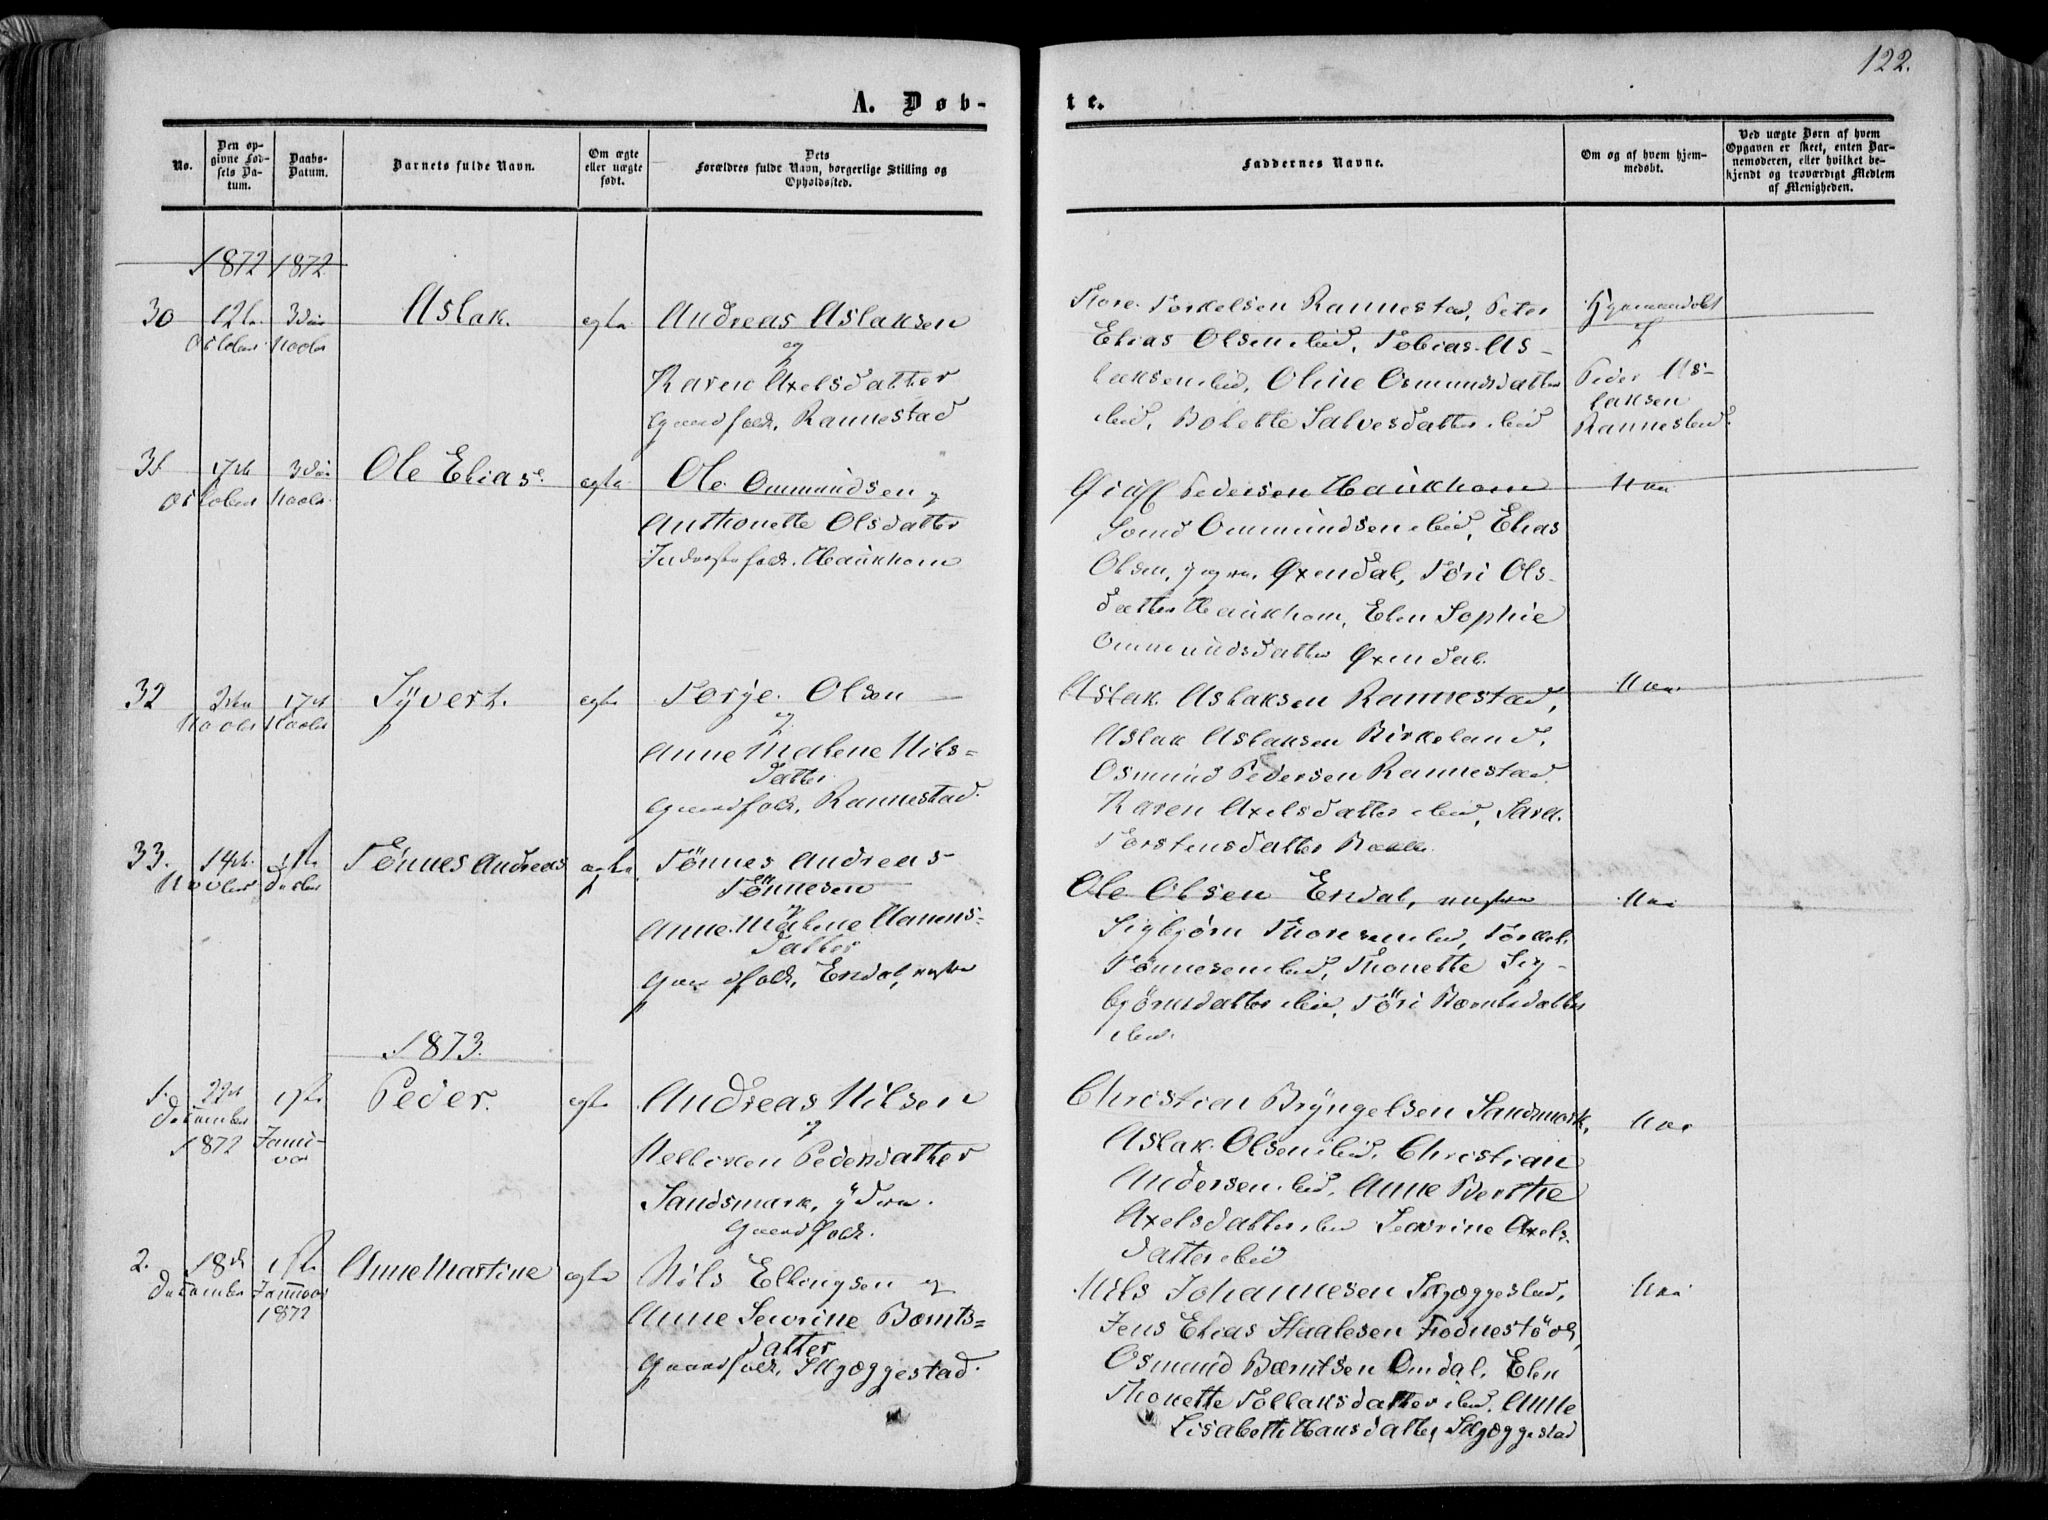 122.
A. Døb-
te.
No.
Den op-
givne Fød-
sels Da-
tum.
Daabs-
Datum.
Barnets fulde Navn.
Om ægte
eller uægte
født.
Dets
Forældres fulde Navn, borgerlige Stilling og
Opholdssted.
Faddernes Navne.
Om og af hvem hjem-
medøbt.
Ved uægte Børn af hvem
Opgaven er skeet, enten Bar-
nemoderen, eller hvilket be-
kjendt og troværdigt Medlem
af Menigheden.
1872 1872
30
12te
October
3die
Novbr
Aslak.
egte
Andreas Aslaksen
og
Karen Axelsdatter
Gaardfolk, Rannestad
Thore Torkelsen Rannestad, Peter
Elias Olsen ibid, Tobias As-
laksen ibid, Oline Osmundsdatter
ibid, Bolette Salvesdatter ibid
Hjemmedøbt
af
Peder As-
laksen
Rannestad.
31
17de
October
3die
Novbr.
Ole Elias
egte
Ole Ommundsen og
Anthonette Olsdatter
Inderstefolk. Haukhom
Pedersen Haukhom
Ommundsen ibid, Elias
Olsen, Øxendal, Tøri Ols-
datter Haukhom, Elen Sophie
Ommundsdatter Øxendal.
Nei
32
2den
Novbr
17de
Novbr
Syvert.
egte
Torje Olsen
og
Anne Malene Nils-
datter
Gaardfolk, Rannestad.
Aslak Aslaksen Rannestad,
Aslak Aslaksen Birkeland,
Osmund Pedersen Rannestad
Karen Axelsdatter ibid, Sara
Torstensdatter
Nei
33.
14de
Novbr
1ste
Decbr
Tønnes Andreas
egte
Tønnes Andreas
Tønnesen
og
Anne Malene Hanns-
datter
Gaardfolk, Erdal, nestre
Ole Olsen Erdal, nestre
Sigbjørn Thoresen ibid, Torkel
Tønnesen ibid, Thonette Sig-
bjørnsdatter ibid, Tøri Berntsdatter
ibid.
Nei
1873.
1.
22de
December
1872
1ste
Janu-
ar
Peder.
egte
Andreas Nilsen
og
Pedersdatter
Sandsmark, ydre
Gaardfolk.
Christian Bryngelsen Sandsmark,
Aslak Olsen ibid, Christian
Andersen ibid, Anne Berthe
Axelsdatter ibid Sevrine Axels-
datter ibid
Nei
2.
18de
December
1ste
Januar
1872
Anne Martine
egte
Nils Ellingsen og
Anne Sevrine Bernts-
datter
Gaardfolk, Skjøggestad.
Nils Johannesen Skjøggestad,
Jens Elias Haalesen Fodnestøl,
Osmund Berntsen Omdal, Elen
Thonette Tollaksdatter ibid, Anne
Lisabeth Hansdatter Skjøggestad
Nei